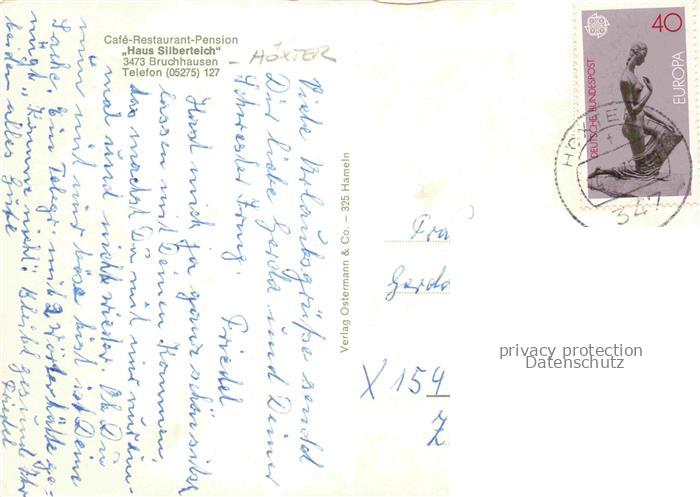 Café-Restaurant-Pension
„Haus Silberteich"
3473 Bruchhausen
Telefon (05275) 127
- HÖXTER
Viele Urlaubsgrüße sendet
Dir liebe Gerda und Deiner
Schwester Irmg. Friedel
Hast mich ja ganz schön sitzen
lassen mit Deinen Kommen,
das machst Du mit mir nur ein-
mal und nicht wieder. Ob Du
nun mit mir böse bist ist Deine
Sache. Ein Telegr. mit 2 Wörter hätte ge-
nügt „Komme nicht". Bleibt gesund Ihr
beiden alles Gute Friedel
Verlag Ostermann & Co. – 325 Hameln
Gerda
X 154
Z
40
EUROPA
DEUTSCHE BUNDESPOST
HÖXTE
347
privacy protection
Datenschutz